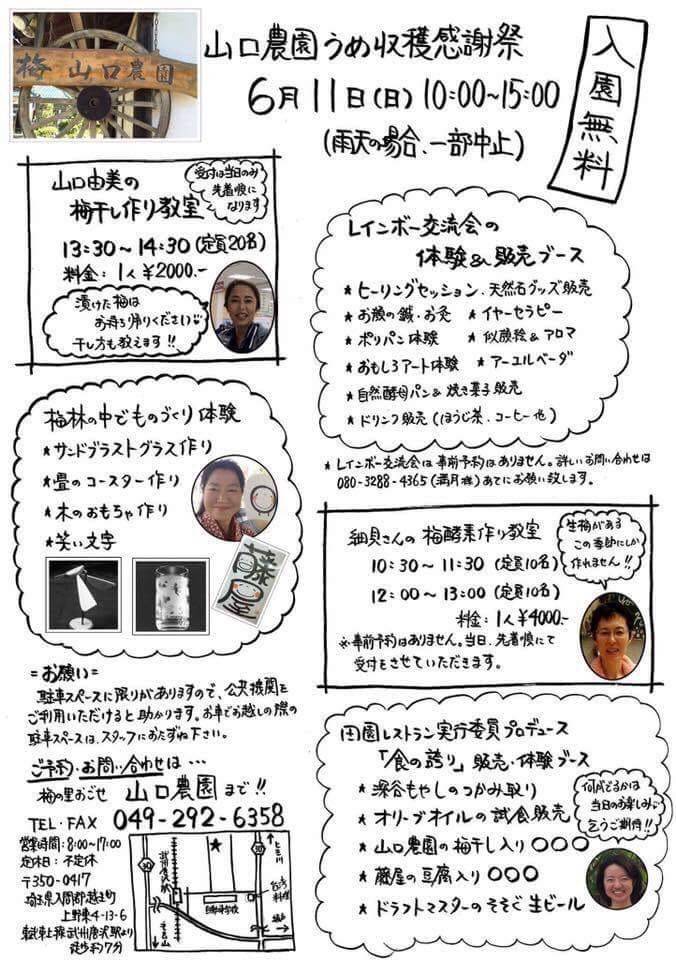 梅 山口農園
山口農園うめ収穫感謝祭
6月11日(日)10:00~15:00
(雨天の場合、一部中止)
入園無料
山口由美の
梅干し作り教室
受付は当日のみ
先着順に
なります
13:30~14:30(定員20名)
料金:1人¥2000.-
漬けた梅は
お持ち帰りください
干し方も教えます!!
レインボー交流会の
体験&販売ブース
★ヒーリングセッション、天然石グッズ販売
★お顔の鍼・お灸 ★イヤーセラピー
★ポリパン体験 ★似顔絵&アロマ
★おもしろアート体験 ★アーユルベーダ
★自然酵母パン&焼き菓子販売
★ドリンク販売(ほうじ茶、コーヒー他)
★レインボー交流会は事前予約はありません。詳しいお問い合わせは
080-3288-4365(満月㈱)あてにお願い致します。
梅林の中でものづくり体験
★サンドブラストグラス作り
★畳のコースター作り
★木のおもちゃ作り
★笑い文字
藤屋
細貝さんの 梅酵素作り教室
10:30~11:30(定員10名)
12:00~13:00(定員10名)
料金:1人¥4000.-
※事前予約はありません。当日、先着順にて
受付をさせていただきます。
生梅がある
この季節にしか
作れません!!
=お願い=
駐車スペースに限りがありますので、公共機関を
ご利用いただけると助かります。お車でお越しの際の
駐車スペースは、スタッフにおたずね下さい。
ご予約・お問い合わせは…
梅の里おごせ 山口農園まで!!
TEL・FAX 049-292-6358
営業時間:8:00~17:00
定休日:不定休
〒350-0417
埼玉県入間郡越生町
上野東4-13-6
東武東上線武州唐沢駅より
徒歩約7分
30
武州唐沢駅
30
田園レストラン実行委員プロデュース
「食の誇り」販売・体験ブース
★深谷もやしのつかみ取り
★オリーブオイルの試食販売
★山口農園の梅干し入り○○○
★藤屋の豆腐入り○○○
★ドラフトマスターのそそぐ生ビール
何ができるかは
当日のお楽しみ
乞うご期待!!